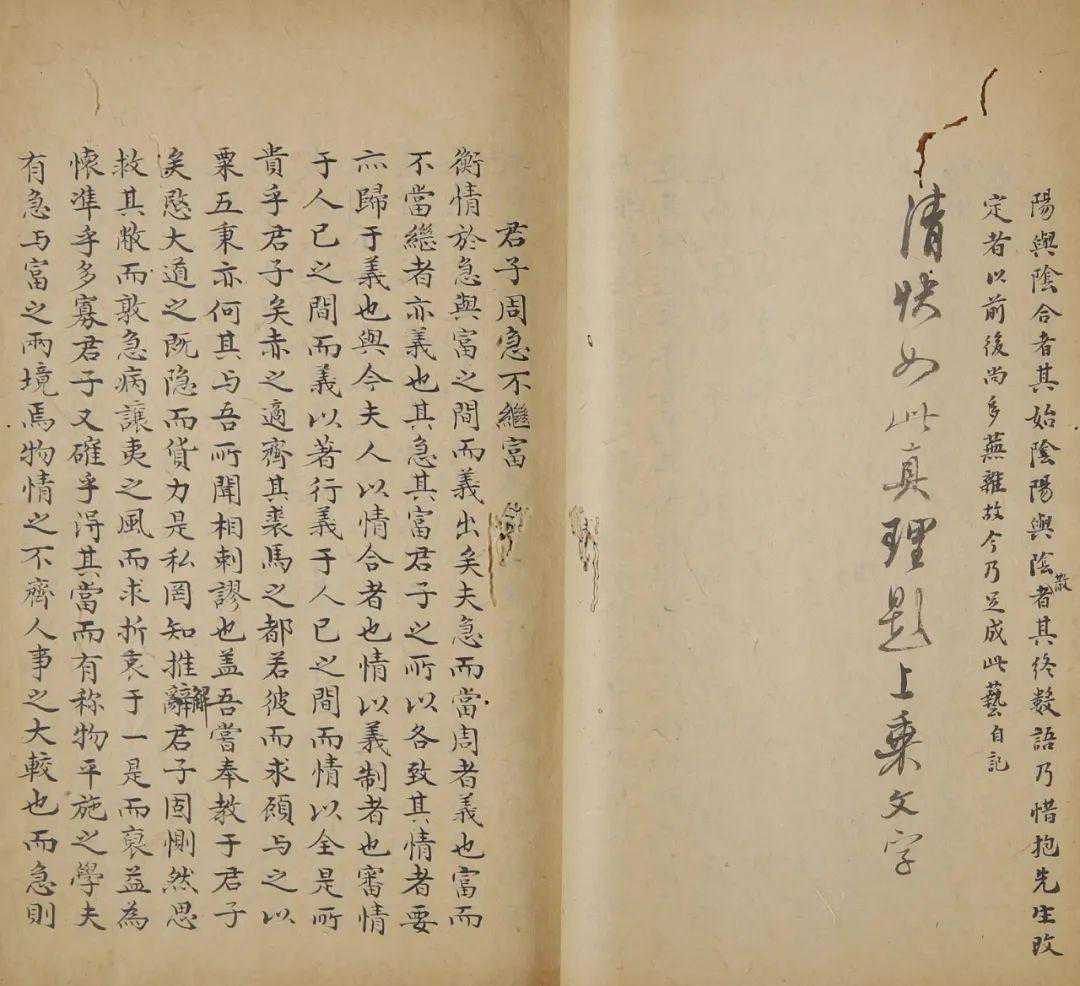 陽與陰合者其始陰陽與陰散者其終數語乃惜抱先生改
定者以前後尚多蕪雜故今乃足成此藝自記
清快如此真理題上乘文字
君子周急不繼富
衡情於急與富之間而義出矣夫急而當周者義也富而
不當繼者亦義也其急其富君子之所以各致其情者要
亦歸于義也與今夫人以情合者也情以義制者也審情
于人已之間而義以著行義于人已之間而情以全是所
貴乎君子矣赤之適齊其裘馬之都若彼而求顧与之以
粟五秉亦何其与吾所聞相剌謬也盖吾嘗奉教于君子
矣慜大道之既隐而貨力是私罔知推解君子固惻然思
救其敝而敦急病讓夷之風而求折衷于一是而裒益為
懷準乎多寡君子又確乎淂其當而有称物平施之學夫
有急与富之兩境焉物情之不齊人事之大較也而急則